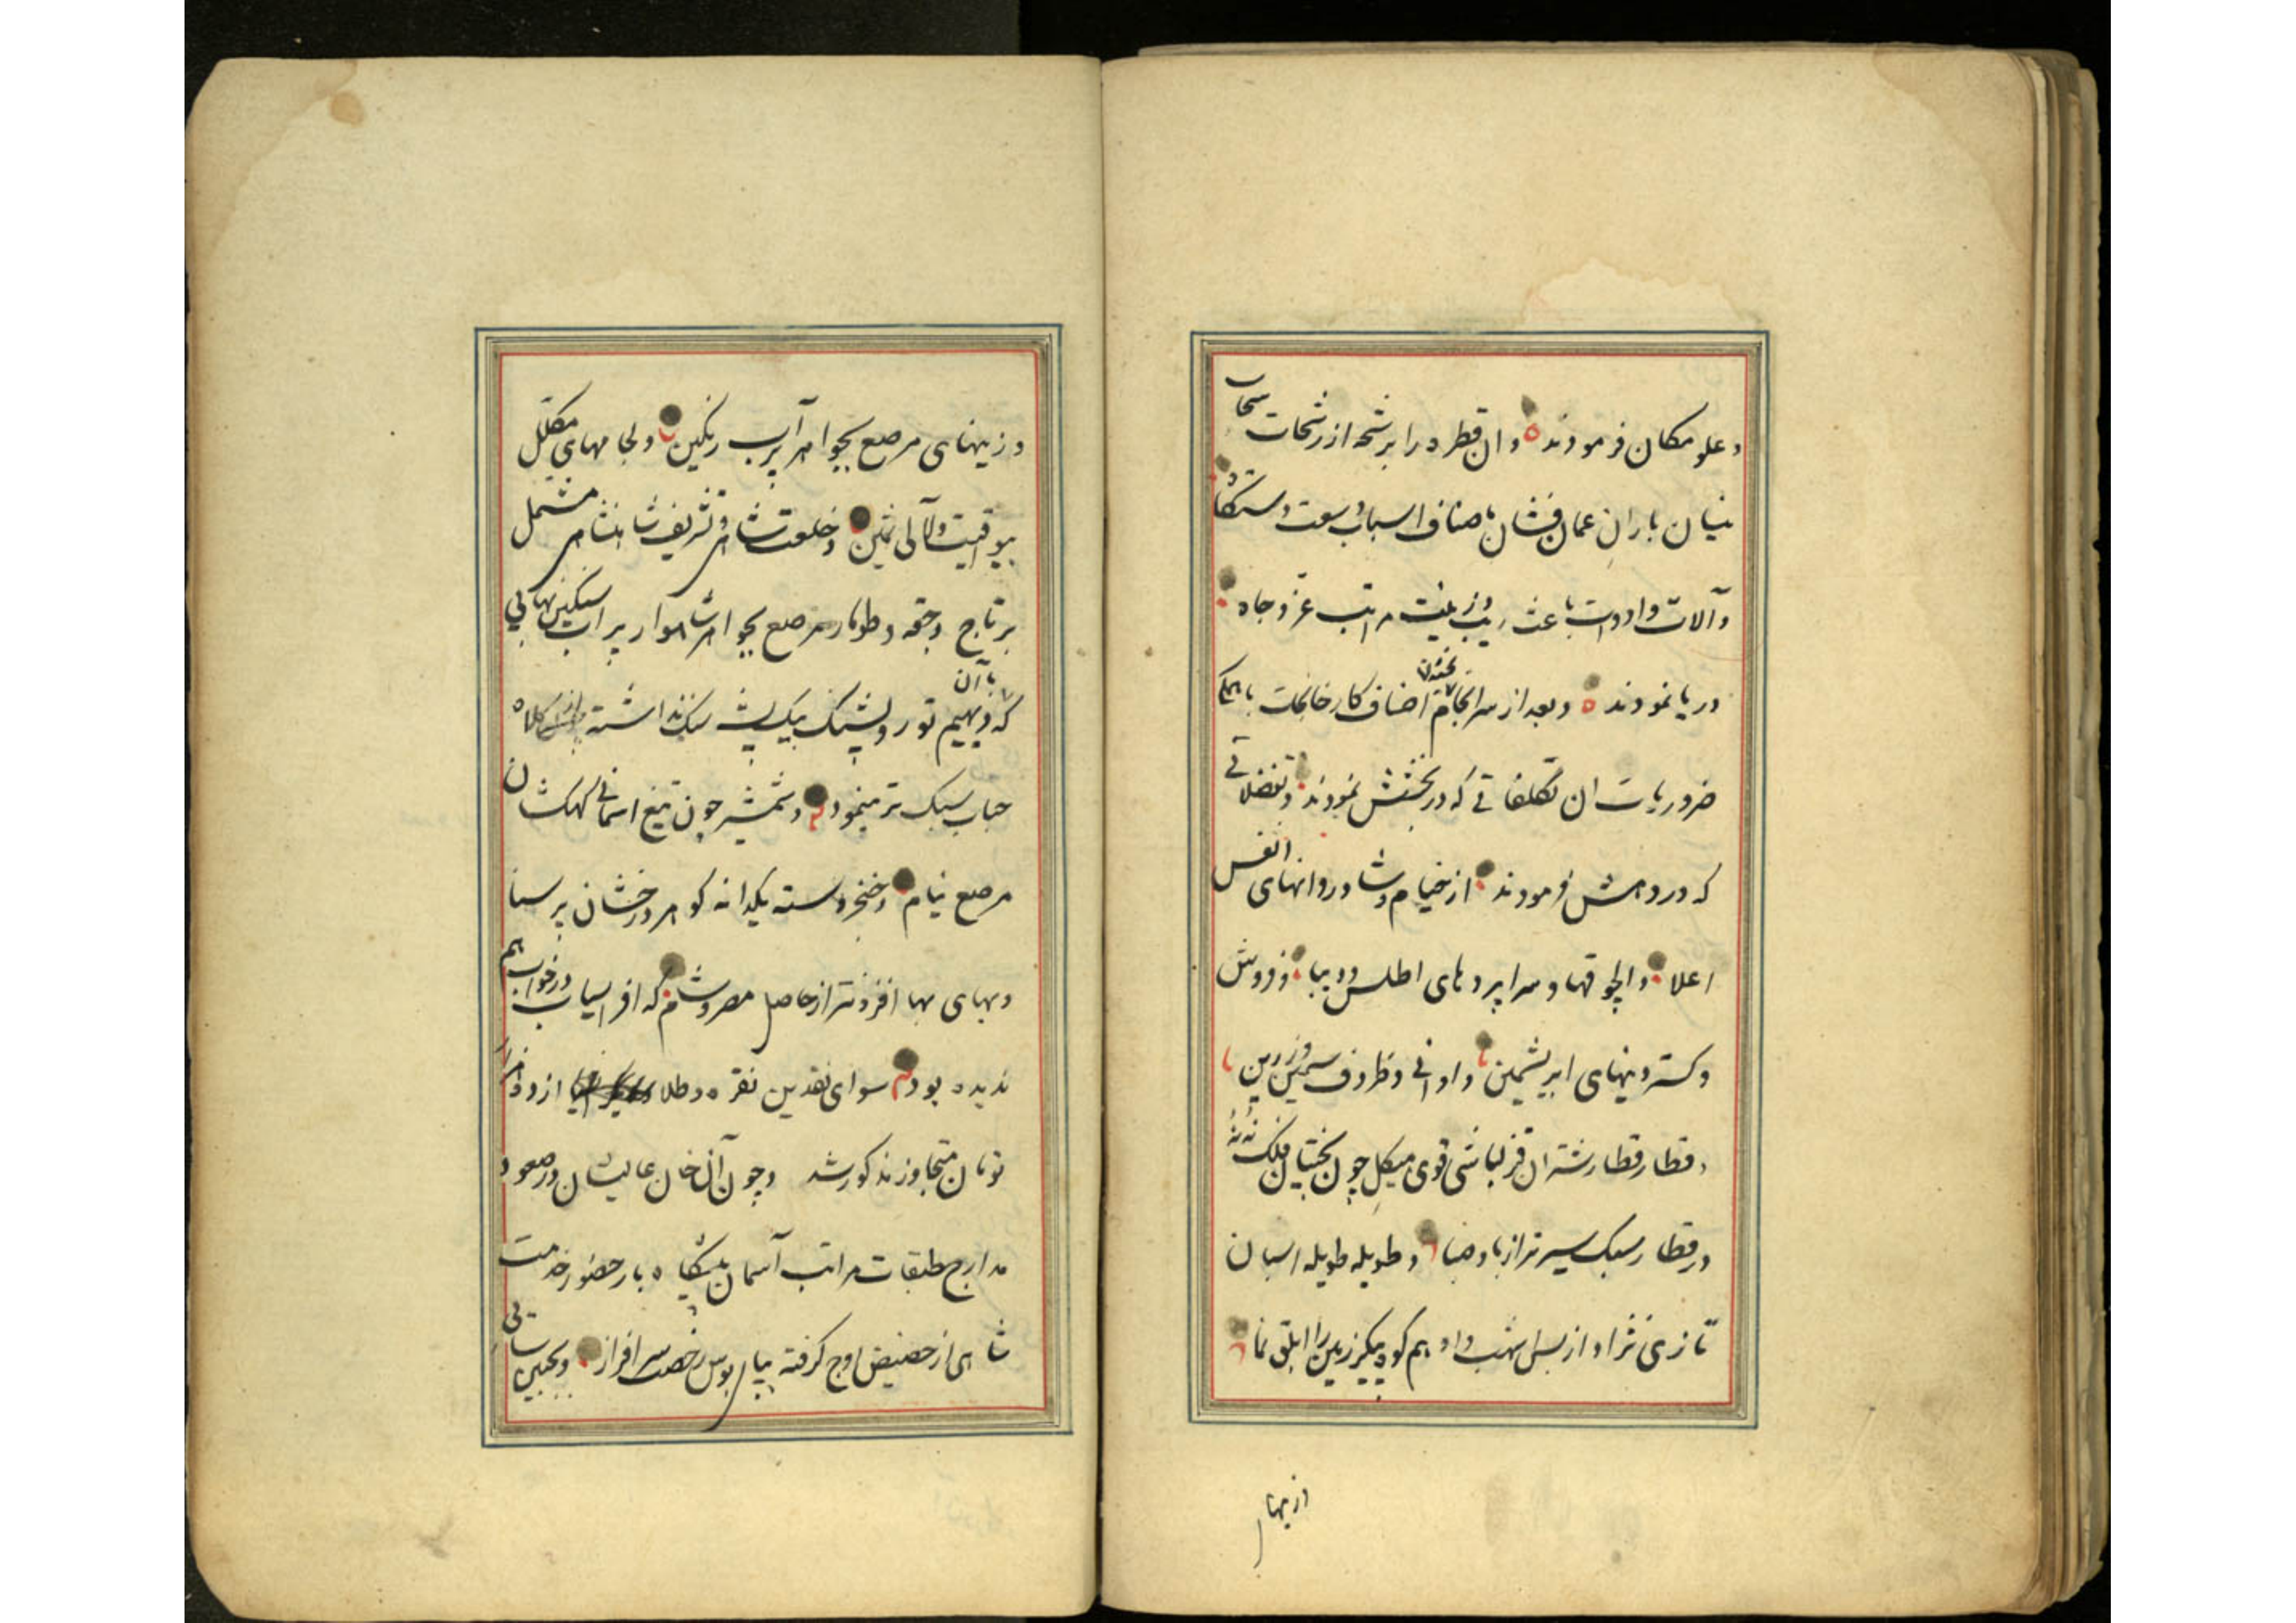 و علو مکان فرمودند و ان قطره را برشحه از رشحات سحاب
نیسان باران عمان فشان باصناف اسباب وسعت دستگاه
و آلات و ادوات باعث زیب و زینت مراتب عز و جاه
دریا نمودند و بعد از سرانجام اصناف کارخانجات بایحکم
ضروریات ان تکلفاتی که در بخشش نمودند و تفضلاتی
که در دهش فرمودند از خیام و شادروانهای انفس
اعلا و الچوقها و سراپردهای اطلس و دیبا و فروش
و گستردنیهای ابریشمین و اوانی و ظروف سیمین و زرین
و قطار قطار شتران قزلباشی قوی هیکل چون بختیان فلک
در قطار سبک سیرتر از باد صبا و طویله طویله اسبان
تازی نژاد از نسل شهب و ادهم کوه پیکر زمین را ابلق نما
و زینها
و زینهای مرصع بجواهر پر آب رنگین و لجامهای مکلل
بیواقیت و لآلی ثمین و خلعت شاهی و تشریف شاهنشاهی مشتمل
بر تاج و جقه و طومار مرصع بجواهر شاهوار پر اب سنگین بهائی
که با آن دیهیم تور و پشنگ بیک پشیز سنگ نداشته کلاه
حباب سبک تر مینمود و شمشیر چون تیغ اسمانی کهکشان
مرصع نیام و خنجر دسته یکدانه گوهر درخشان پر سنا
و بهای بها افزونتر از حاصل مصر و شام که افراسیاب در خواب هم
ندیده بود سوای نقدین نقره و طلا از دو هزار
تومان متجاوز مذکور شد و چون آن خان عالیشان در صعود
مدارج طبقات مراتب آسمان پیشگاه بار حضور خدمت
شاهی از حضیض اوج گرفته بپابوس رخصت سرافراز و بجبین سائی